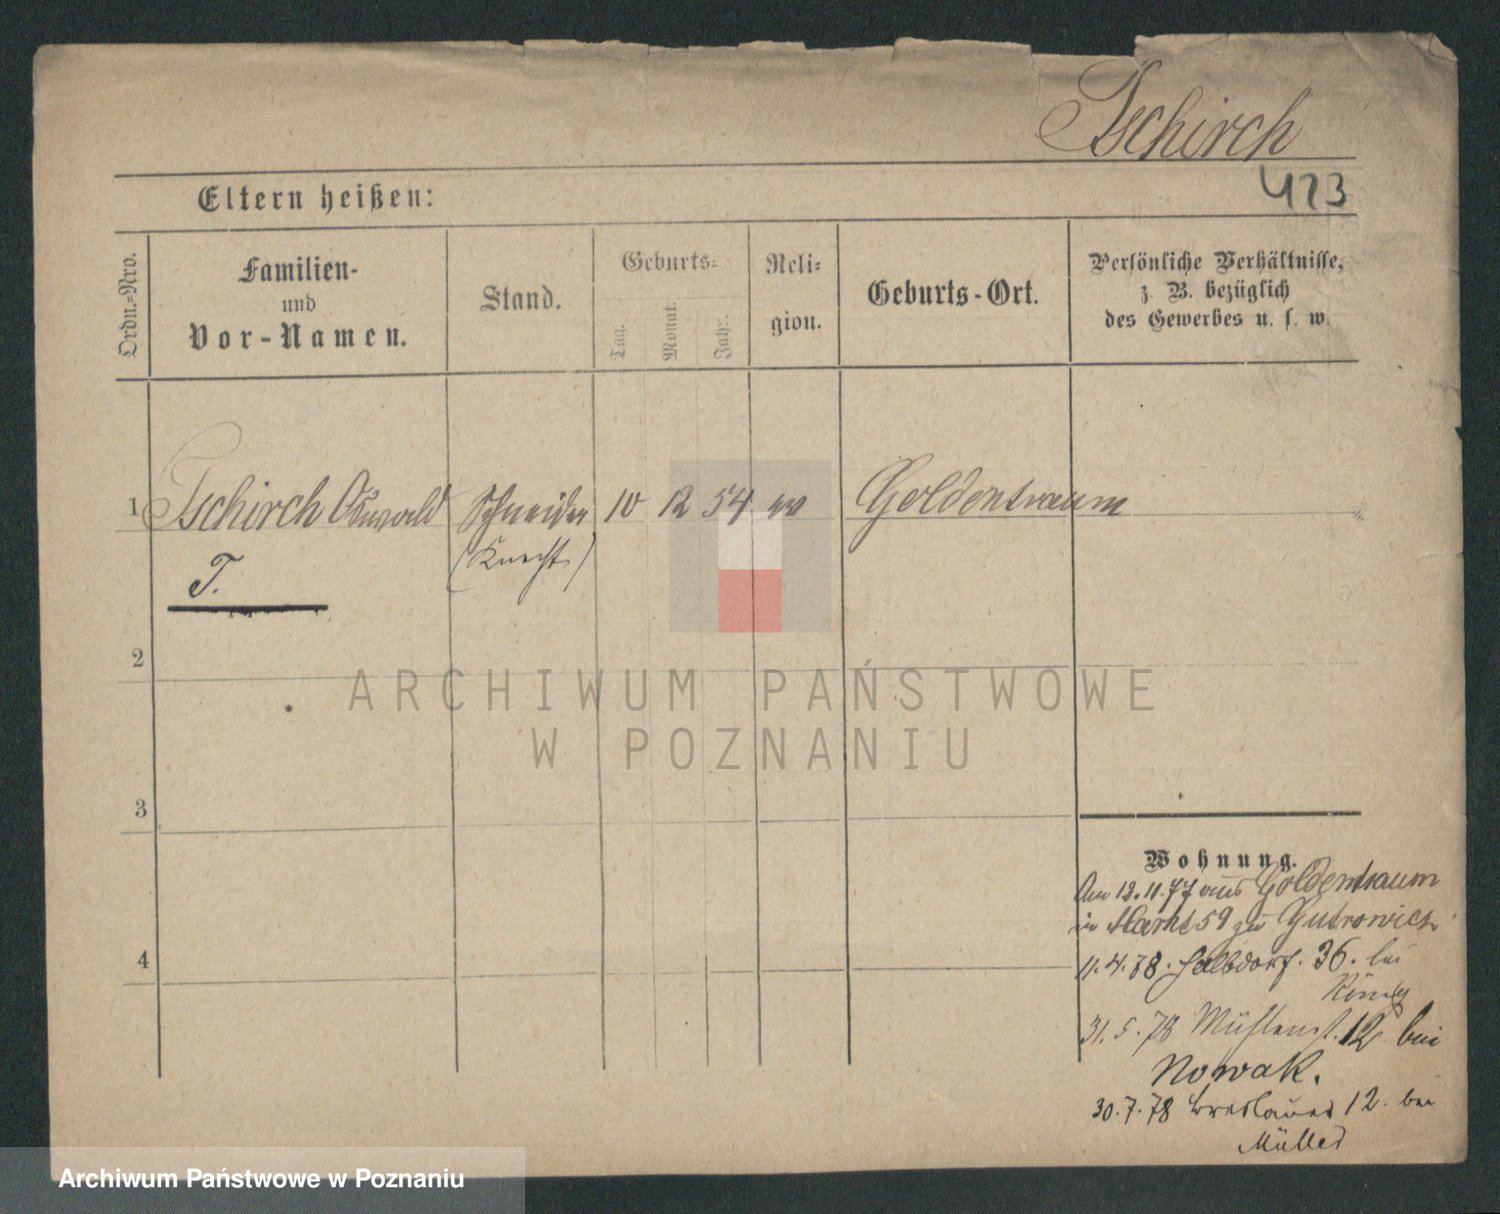 Tschirch
423
Eltern heißen:
Ordn.=Nro.
Familien-
und
Vor-Namen.
Stand.
Geburts=
Tag.
Monat.
Jahr.
Reli=
gion.
Geburts-Ort.
Persönliche Verhältnisse,
z. B. bezüglich
des Gewerbes u. s. w.
1 Tschirch Oswald Schneider 10 12 54 ev Goldentraum
(Knecht)
T.
2
3
4
ARCHIWUM PAŃSTWOWE
W POZNANIU
Wohnung.
Am 12.11.77 aus Goldentraum
in Markt 59 zu
11.4.78. Halbdorf. 36. bei
König
31.5.78 Mühlenst. 12 bei
Nowak.
30.7.78 Breslauer 12. bei
Müller
Archiwum Państwowe w Poznaniu